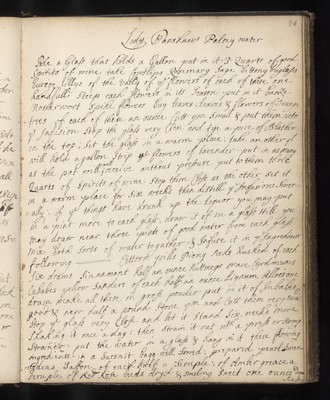 Lady Palsey water
Take a Glass that holds a Gallon put in it 3 Quarts of good
Spirits of wine take Cowslips Rosemary Sage Bettony Buglass
Borage Lillys of the vally of ye flowers of each of these one
handfull: Steep each flowers in its Season put in it
Motherwort Spike flowers bay leaves leaves & flowers of Orange
trees of each of them an ounce Cutt ym Small & put them into
ye Infusion Stop the glass very Close and tye a piece of Blather
on the top: Set the glass in a warm place: take another yt
will hold a gallon Strip ye flowers of lavender put in as many
as the pot will receive without pressure put to them three
Quarts of Spirits of wine Stop them Close as the other, Set it
in a warm place for Six weeks then distill ye Infusions Seve=
rally: if ye things have drunk up the liquor you may put
in a pint more to each glass, draw it of in a glass Still you
may draw near three pints of good water from each glass
mix both Sorts of water together & Infuse it in ye Ingredients
following Cittorn pills Piony Seeds Husked of each
Six drams Sinnamont half an ounce Nuttmegs mace Cardimums
Cubebes yellow Sanders of each half an ounce Lignum Alloes one
dram make all these in gross powder put in it of Jububes
good & new half a pound Stone ym and Cutt them very Small
Stop ye glass very Close and let it Stand Six weeks more
Shaking it once a day: then Strain it out wth a press or Strong
Strainer: put the water in a glass & hang in it these following
ingredients: in a Sarsnit bagg well Sowed: prepared pearl
Saffron of each half a Scruple: of Amber greace a
Scruple, of Red Rose buds dryed & Smelling Sweet one ounce